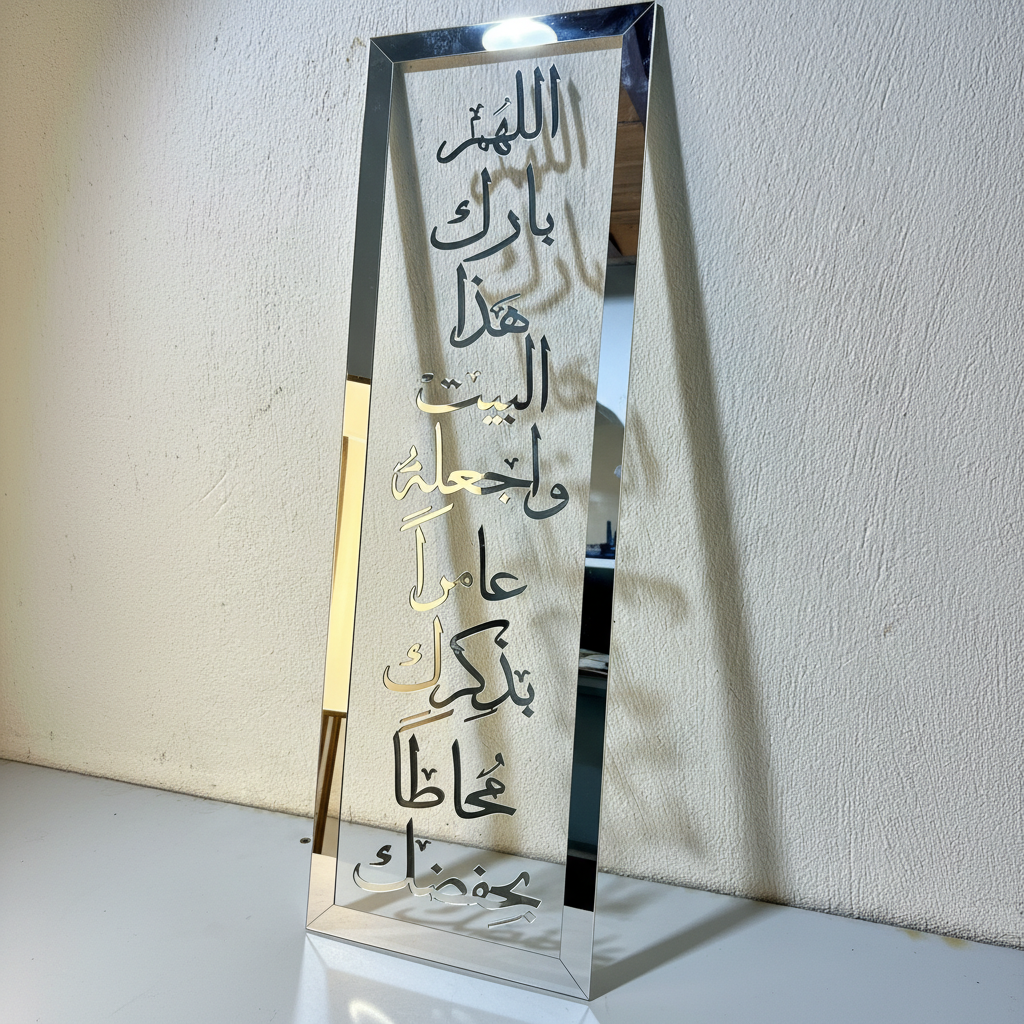 اللهُمْ
بارك
هَذا
البيتْ
واجعلهُ
عامراً
بذكِرك
مُحاطاً
بِحفضك